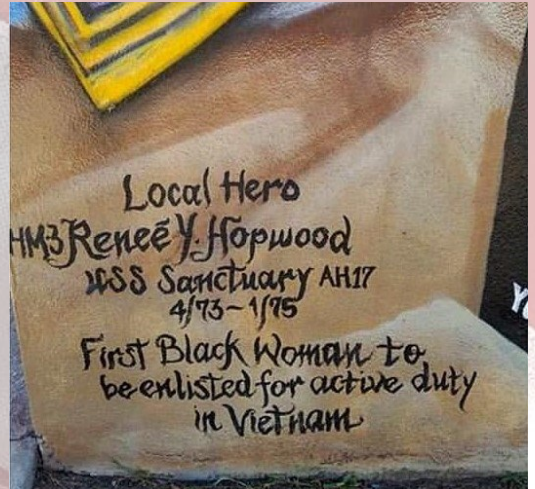 Local Hero
HM3 Reneé Y. Hopwood
USS Sanctuary AH17
4/73~1/75
First Black Woman to
be enlisted for active duty
in Vietnam